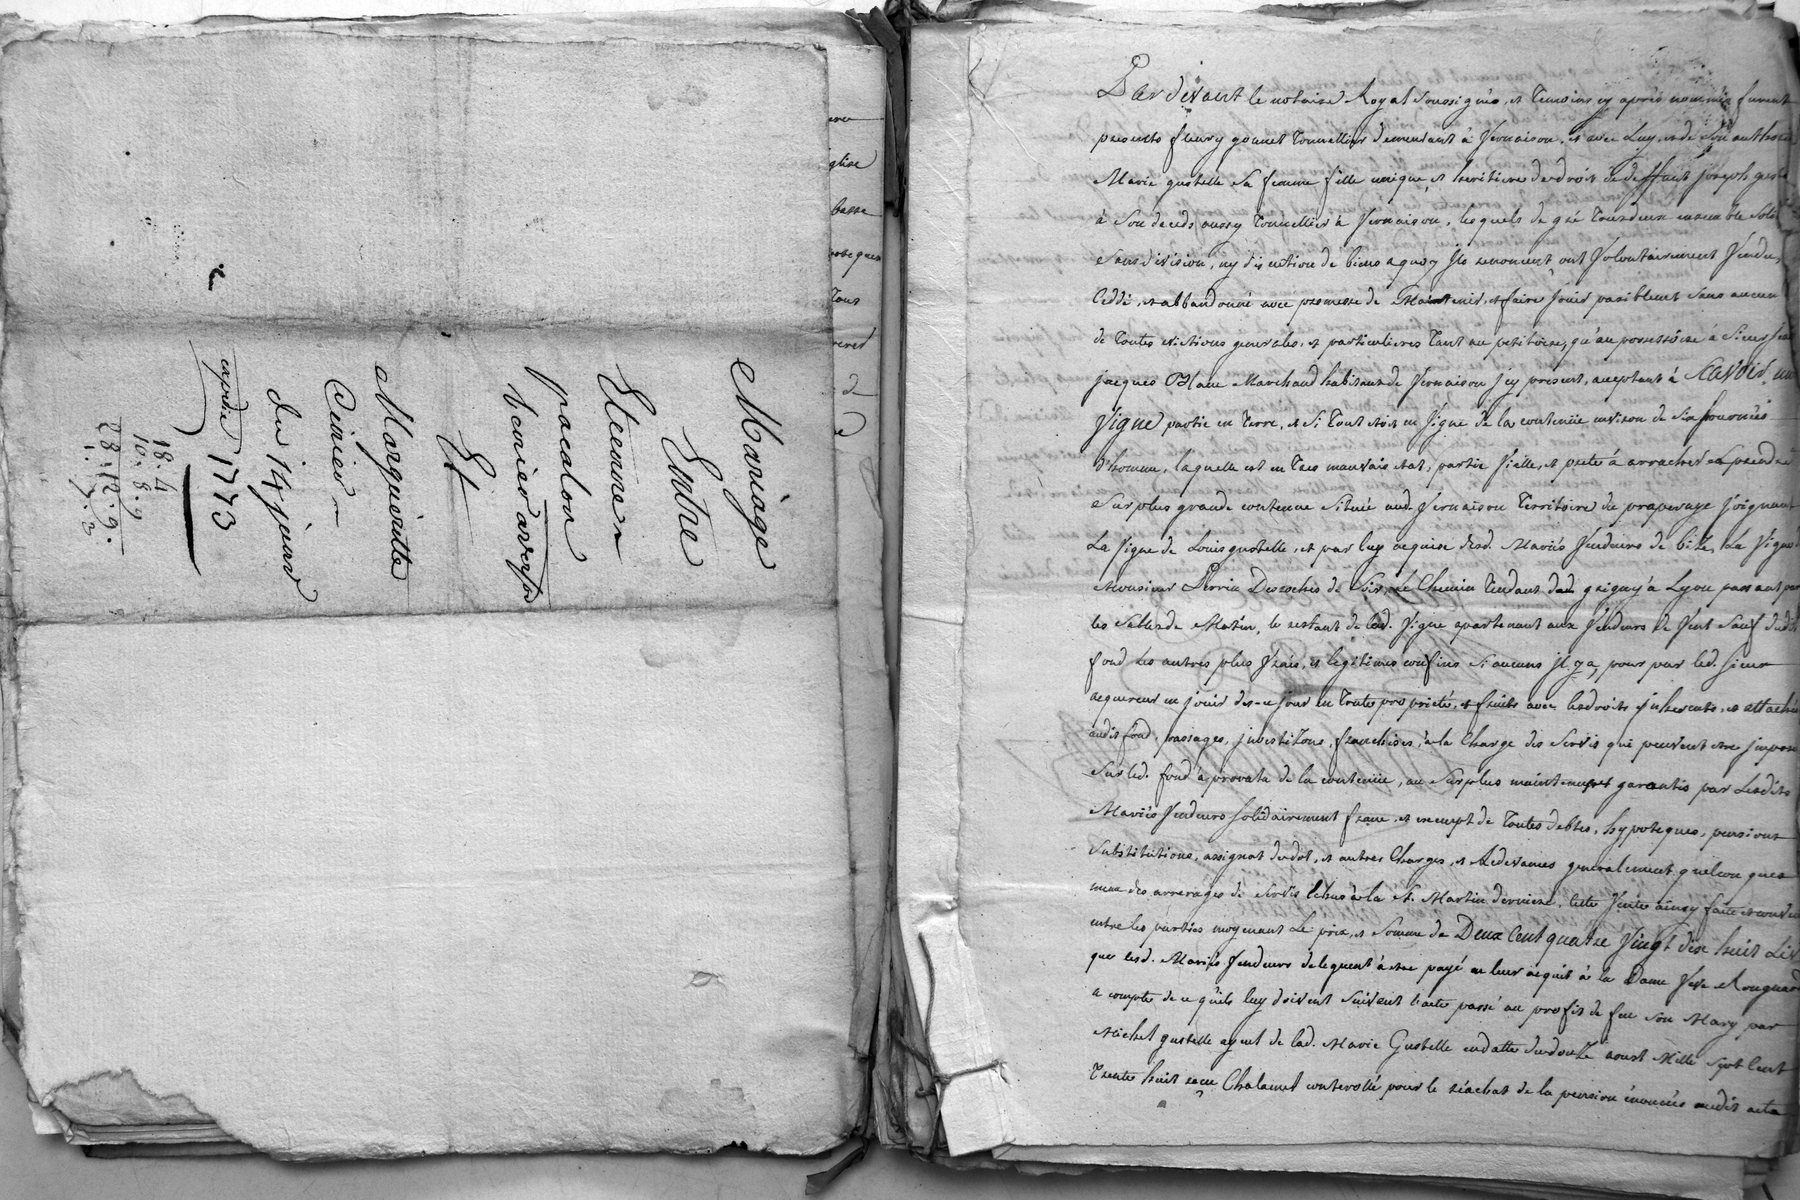 Mariage
Entre
Etienne
pacalon
Et
Margueritte
du 14 janv
expedié 1773
18. 4
10. 8. 9
28. 12. 9.
1. 7. 3
glise
basse
Tous
Par devant le notaire Royal soussigné, et temoins cy après nommés furent
presents fleury gonnet tonnellier demeurant à Vernaison, et avec luy, et de son authori
Marie gubelle sa femme fille unique, et heritiere de droit de deffunt joseph
à son decés aussy tonnellier à Vernaison, lesquels de gré tous deux ensemble soli
sans division, ny discution de biens a quoy ils renoncent, ont volontairement vendu,
ceddé, et abbandonné avec promesse de maintenir, et faire jouir paisiblemt sans aucun
de toutes evictions generales, et particulieres tant au petitoire, qu'au possessoire à sieur jean
jacques Blanc marchand habitant de Vernaison jcy present, acceptant à Scavoir, une
Vigne partie en terre, et si tout etoit en vigne de la contenüe environ de six fournées
d'homme, laquelle est en tres mauvais etat, partie vielle, et prete à arracher a prendre
sur plus grande contenue située aud. Vernaison territoire du joignant
la vigne de Louis gubelle, et par luy acquise desd. mariés vendeurs de bize, la vigne d
monsieur Perrin de soir, le chemin tendant de grigny à Lyon passant par
les sables de matin, le restant de lad. vigne apartenant aux vendeurs de vent sauf dudit
fond les autres plus vrais, et legitimes confins si aucuns jl y a, pour par led. sieur
acquereur en jouir des-ce jour en toute proprieté, et fruits avec les droits jnherents, et attachés
audit fond, passages, franchises, à la charge des servis qui peuvent etre jmposé
sur led. fond a prorata de la contenüe, au surplus maintenu et garantis par lesdits
Mariés vendeurs solidairement franc, et exempt de toutes debtes, hypoteques, pensions
substitutions, assignat de dot, et autres charges, et redevances generalement quelconques
meme des arrerages de servis echus à la St. Martin derniere, cette vente ainsy faite et convenu
entre les parties moyenant le prix, et somme de Deux cent quatre vingt dix huit Liv
que lesd. Mariés vendeurs deleguent à etre payé en leur acquit à la Dame veve
a compte de ce qu'ils luy doivent suivant l'acte passé au profit de feu son mary par
Michel gubelle ayeul de lad. Marie Gubelle en datte du douze aoust mille sept cent
trente huit recu Chalamel controllé pour le réachat de la pension énoncée audit acte